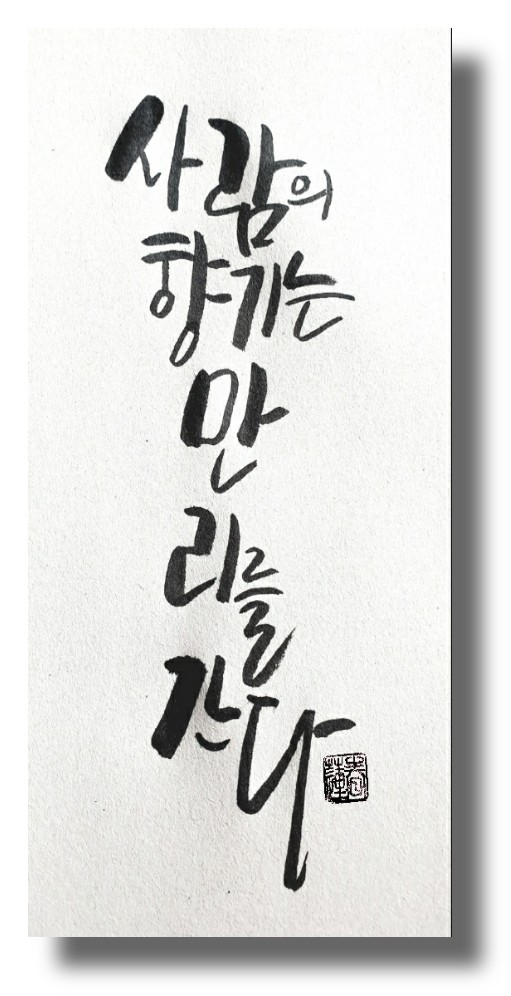 사람의
향기는
만
리를
간다